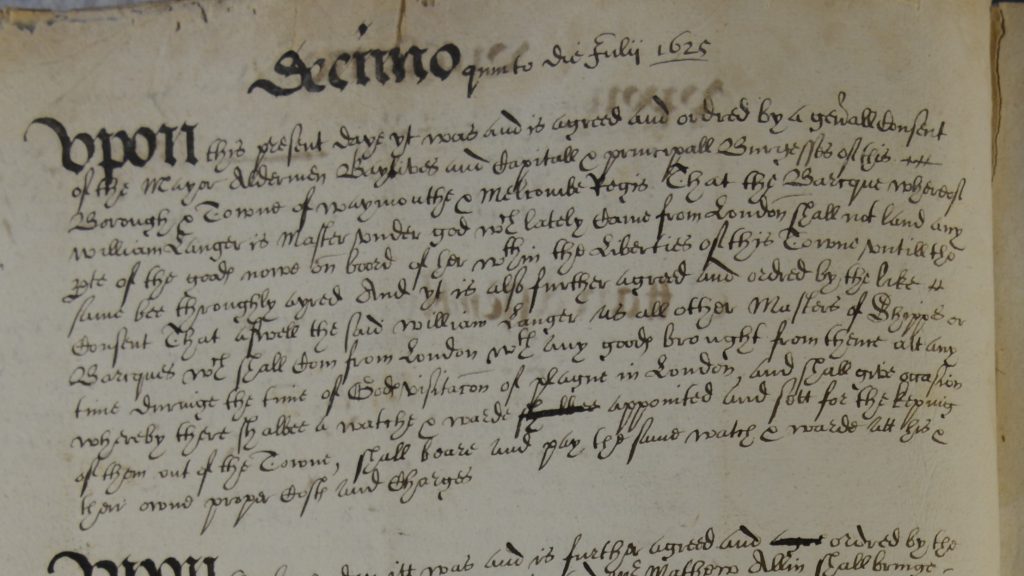 Decimo quinto die Julii 1625
Vpon this present daye yt was and is agreed and ordred by a gen'all Consent
of the Mayor Aldermen Baylives and Capitall & principall Burgesses of this
Borough & Towne of Waymouthe & Melcombe Regis That the Barcque whereof
William Langer is Master vnder god wch lately Came from London shall not land any
pte of the goods nowe on board of her wthin the Liberties of this Towne vntill the
same bee throughly ayred And yt is also further agreed and ordred by the like
Consent That aswell the said William Langer as all other Masters of Shipps or
Barcques wch shall Com from London wth any goods brought from theme att any
time duringe the time of Gods visitacon of plague in London, and shall give occasion
whereby there shalbee a watche & warde appointed and sett for the keping
of them out of the Towne, shall beare and pay the same watch & warde att his &
their owne proper Costs and Charges
Vpon was and is further agreed and ordred by the
Mr Mathew Allin shall bringe